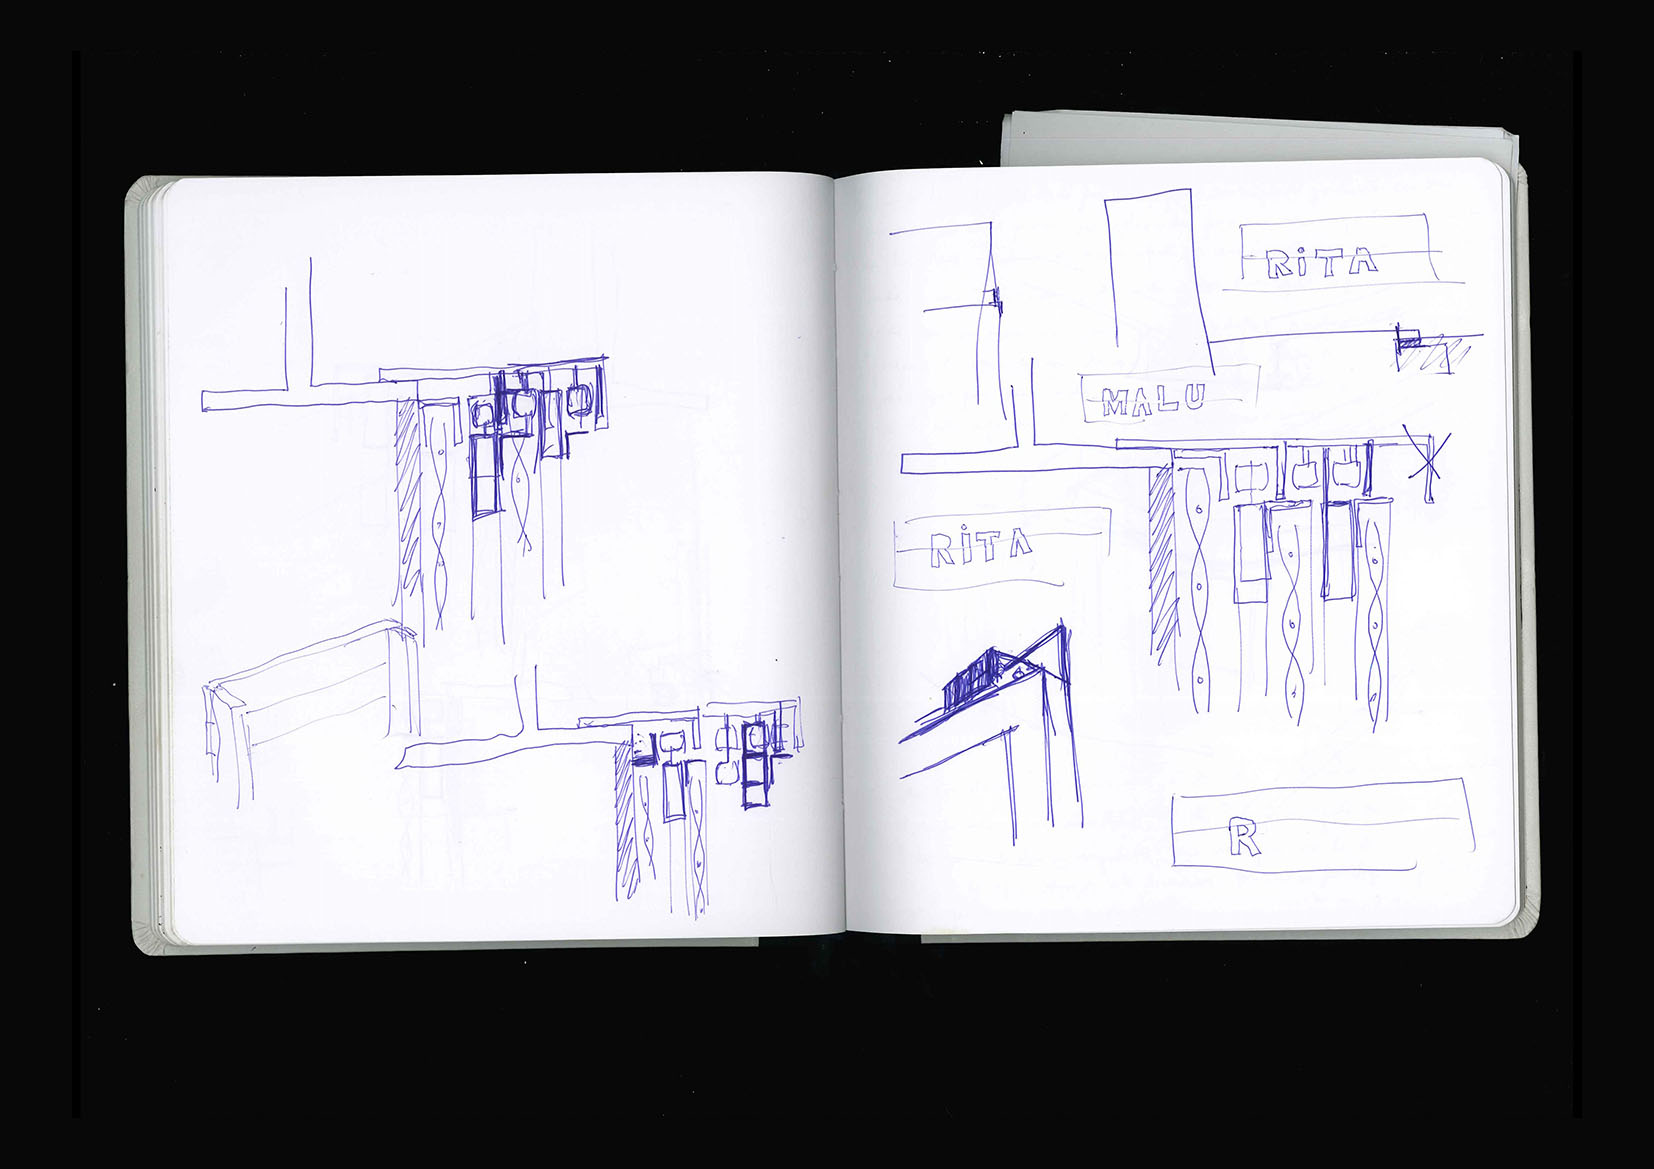 RiTA
MALU
RiTA
R